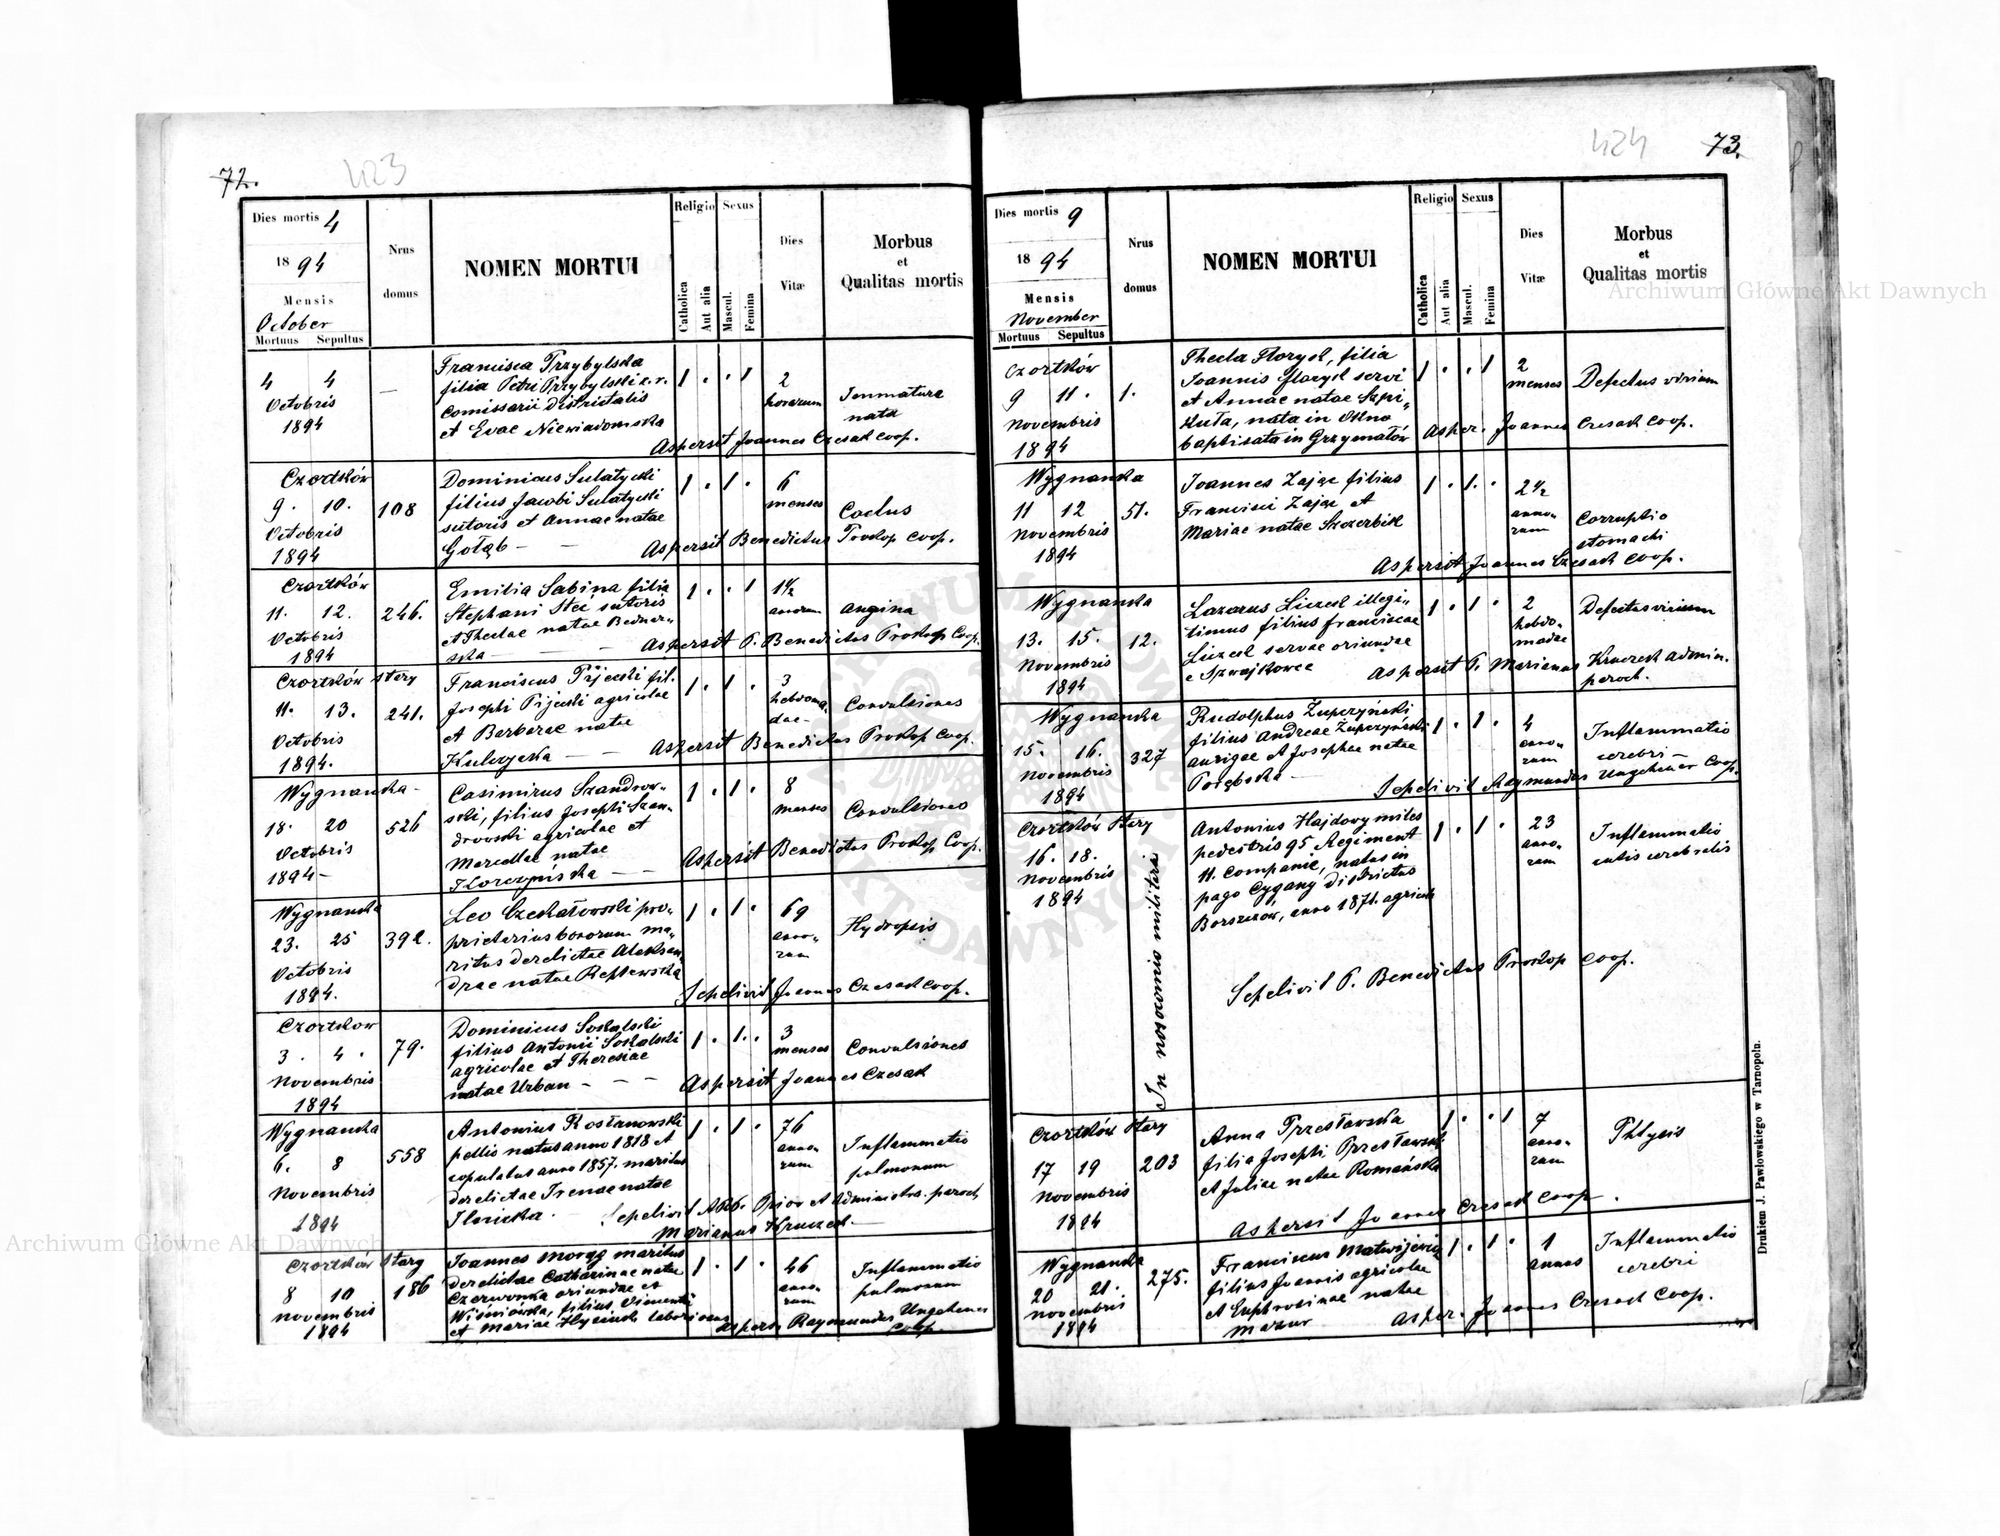 72.
423
Dies mortis 4
1894
Mensis
October
Mortuus Sepultus
Nrus
domus
NOMEN MORTUI
Religio
Catholica
Aut alia
Sexus
Mascul.
Femina
Dies
Vitæ
Morbus
et
Qualitas mortis
4 4
Octobris
1894
—
Francisca Przybylska
filia Petri Przybylski c. r.
Comissarii districtalis
et Evae Niewiadomska
1 . . 1
2
horarum
Immatura
nata
Aspersit Joannes Czesak coop.
Czortków
9. 10.
Octobris
1894
108
Dominicus Sulatycki
filius Jacobi Sulatycki
sutoris et Annae natae
Gołąb — —
1 . 1 .
6
menses
Coctus
Aspersit Benedictus Prokop Coop.
Czortków
11. 12.
Octobris
1894
246.
Emilia Sabina filia
Stephani Stec sutoris
et Theclae natae Bednar-
ska — — —
1 . . 1
1 1/2
annorum
Angina
Aspersit P. Benedictus Prokop Coop.
Czortków stary
11. 13.
Octobris
1894.
241.
Franciscus Pijecki fil.
Josephi Pijecki agricolae
et Barbarae natae
Kulczycka —
1 . 1 .
3
hebdoma-
dae-
Convulsiones
Aspersit Benedictus Prokop Coop.
Wygnanka -
18. 20
Octobris
1894 -
526
Casimirus Szandrow-
ski, filius Josephi Szan-
drowski agricolae et
Marcellae natae
Florczyńska — —
1 . 1 .
8
menses
Convulsiones
Aspersit Benedictus Prokop Coop.
Wygnanka
23. 25
Octobris
1894.
392.
Leo Czekałowski pro-
prietarius bonorum ma-
ritus derelictae Aleksan-
drae natae Reptewska
1 . 1 .
69
anno-
rum
Hydropsis
Sepelivit Joannes Czesak Coop.
Czortkow
3. 4.
Novembris
1894
79.
Dominicus Sokalski
filius Antonii Sokalski
agricolae et Theresiae
natae Urban — — —
1 . 1 .
3
menses
Convulsiones
Aspersit Joannes Czesak
Wygnanka
6. 8
Novembris
1894
558
Antonius Rostanowski
pellio natus anno 1818 et
copulatus anno 1857. maritus
derelictae Irenae natae
Ilnicka. —
1 . 1 .
76
anno-
rum
Inflammatio
pulmonum
Sepelivit Prior et Administr. paroch
Marianus Kruczek —
Czortków Stary
8 10
novembris
1894
186
Joannes Morąg maritus
derelictae Catharinae natae
Czerwonka oriundae ex
Wiśniówka, filius Vincentii
et Mariae Hycinik laboriosus
1 . 1 .
46
anno-
rum
Inflammatio
pulmonum
Aspers. Raymundus Ungeheuer
Coop.
424
73.
Dies mortis 9
1894
Mensis
November
Mortuus Sepultus
Nrus
domus
NOMEN MORTUI
Religio
Catholica
Aut alia
Sexus
Mascul.
Femina
Dies
Vitæ
Morbus
et
Qualitas mortis
Czortków
9 11.
Novembris
1894
1.
Thecla Floryck, filia
Joannis Floryck servi
et Annae natae Szpi-
kuła, nata in Okno
baptisata in Grzymałów
1 . . 1
2
menses
Defectus virium
Asper. Joannes Czesak Coop.
Wygnanka
11 12
Novembris
1894
51.
Joannes Zając filius
Francisci Zając et
Mariae natae Szczerbik
1 . 1 .
2 1/2
anno-
rum
Corruptio
stomachi
Aspersit Joannes Czesak Coop.
Wygnanka
13. 15.
Novembris
1894
12.
Lazarus Liczek illegi-
timus filius Franciscae
Liczek servae oriundae
e Szwajkowce
1 . 1 .
2
hebdo-
madae
Defectus virium
Aspersit P. Marianus Kruczek Admin.
paroch.
Wygnanka
15. 16.
Novembris
1894
327
Rudolphus Żupczyński
filius Andreae Żupczyński
aurigae et Josephae natae
Porębska —
1 . 1 .
4
anno-
rum
Inflammatio
cerebri
Sepelivit Raymundus Ungeheuer Coop.
Czortków Stary
16. 18.
Novembris
1894
In nosocomio militari
Antonius Hajdowy miles
pedestris 95 Regiment
11. Companie, natus in
pago Cygany districtus
Borszczów, anno 1871. agricola
1 . 1 .
23
anno-
rum
Inflammatio
cutis cerebralis
Sepelivit P. Benedictus Prokop Coop.
Czortków Stary
17 19
Novembris
1894
203
Anna Przesławska
filia Josephi Przesławski
et Juliae natae Romańska
1 . . 1
7
anno-
rum
Phtysis
Aspersit Joannes Czesak Coop.
Wygnanka
20 21.
Novembris
1894
275.
Franciscus Matwijewicz
filius Joannis agricolae
et Euphrosinae natae
Mazur
1 . 1 .
1
annus
Inflammatio
cerebri
Asper. Joannes Czesak Coop.
Drukiem J. Pawlowskiego w Tarnopolu.
Archiwum Główne Akt Dawnych
Archiwum Główne Akt Dawnych